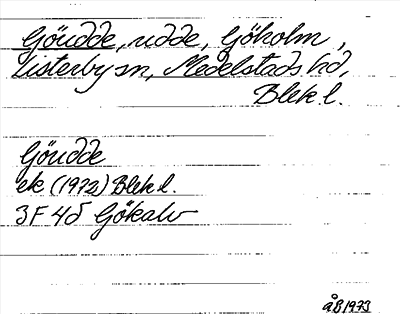 Göudde, udde, Gökolm,
Listerby sn, Medelstads hd,
Blek l.
Göudde
ek (1972) Blek l.
3F 4d Gökalv
åB 1973